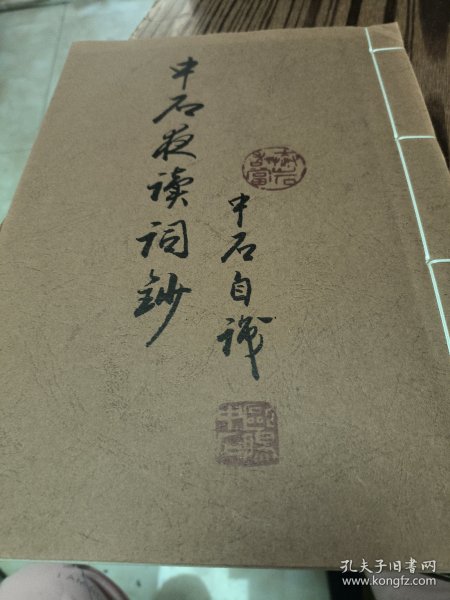 中石夜读词钞
中石自識
歐陽中石
孔夫子旧书网
www.kongfz.com